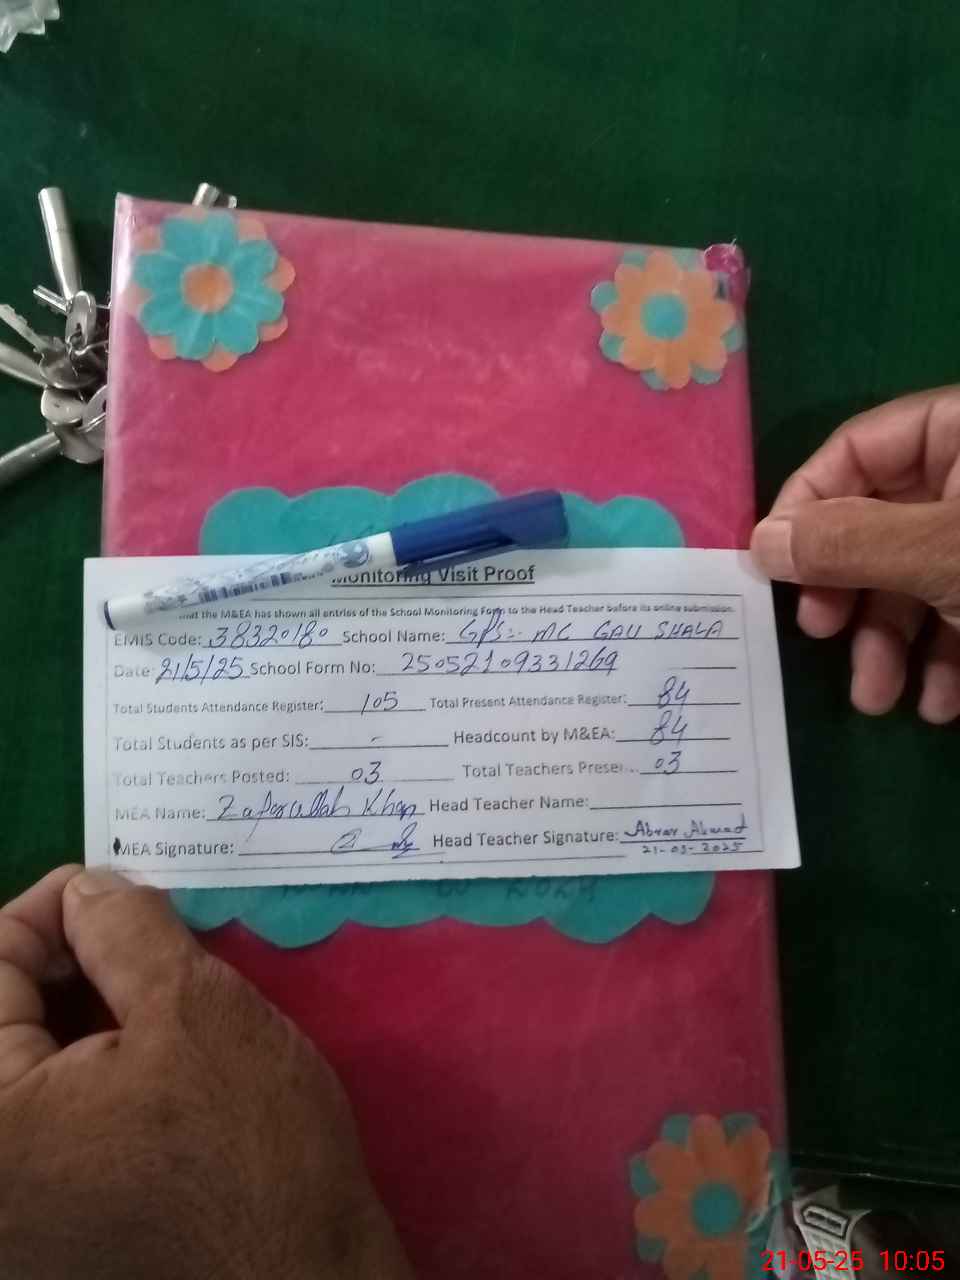 Monitoring Visit Proof
that the M&EA has shown all entries of the School Monitoring Form to the Head Teacher before its online submission.
EMIS Code: 38320180 School Name: GPS:- MC GAU SHALA
Date: 21/5/25 School Form No: 25052109331269
Total Students Attendance Register: 105 Total Present Attendance Register: 84
Total Students as per SIS: - Headcount by M&EA: 84
Total Teachers Posted: 03 Total Teachers Presen... 03
MEA Name: Zafarullah Khan Head Teacher Name:
MEA Signature: Head Teacher Signature: Abrar Ahmad
21-05-2025
21-05-25 10:05